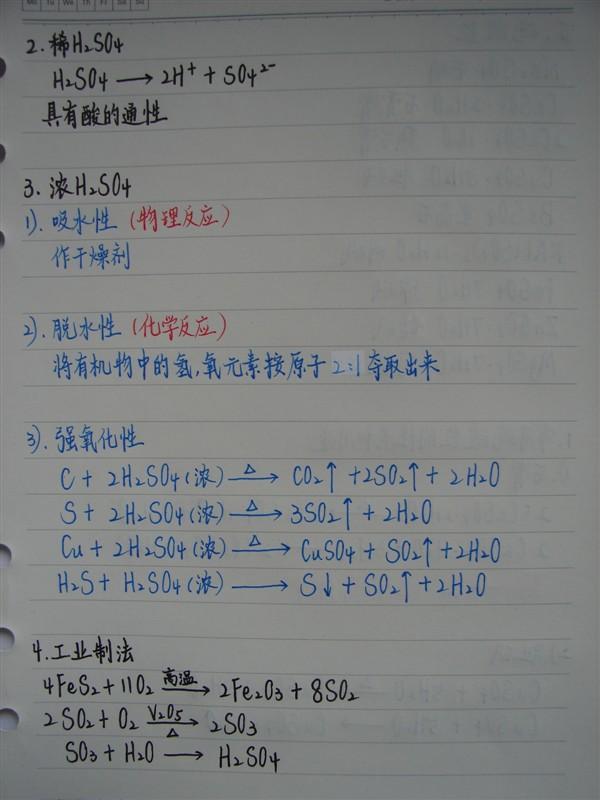 2. 稀H₂SO₄
H₂SO₄ ⟶ 2H⁺ + SO₄²⁻
具有酸的通性
3. 浓H₂SO₄
1). 吸水性 (物理反应)
作干燥剂
2). 脱水性 (化学反应)
将有机物中的氢,氧元素按原子 2:1 夺取出来
3). 强氧化性
C + 2H₂SO₄(浓) —△→ CO₂↑ +2SO₂↑ + 2H₂O
S + 2H₂SO₄(浓) —△→ 3SO₂↑ + 2H₂O
Cu + 2H₂SO₄(浓) —△→ CuSO₄ + SO₂↑ +2H₂O
H₂S + H₂SO₄(浓) ⟶ S↓ + SO₂↑ + 2H₂O
4. 工业制法
4FeS₂ + 11O₂ —高温→ 2Fe₂O₃ + 8SO₂
2SO₂ + O₂ —V₂O₅/△→ 2SO₃
SO₃ + H₂O ⟶ H₂SO₄